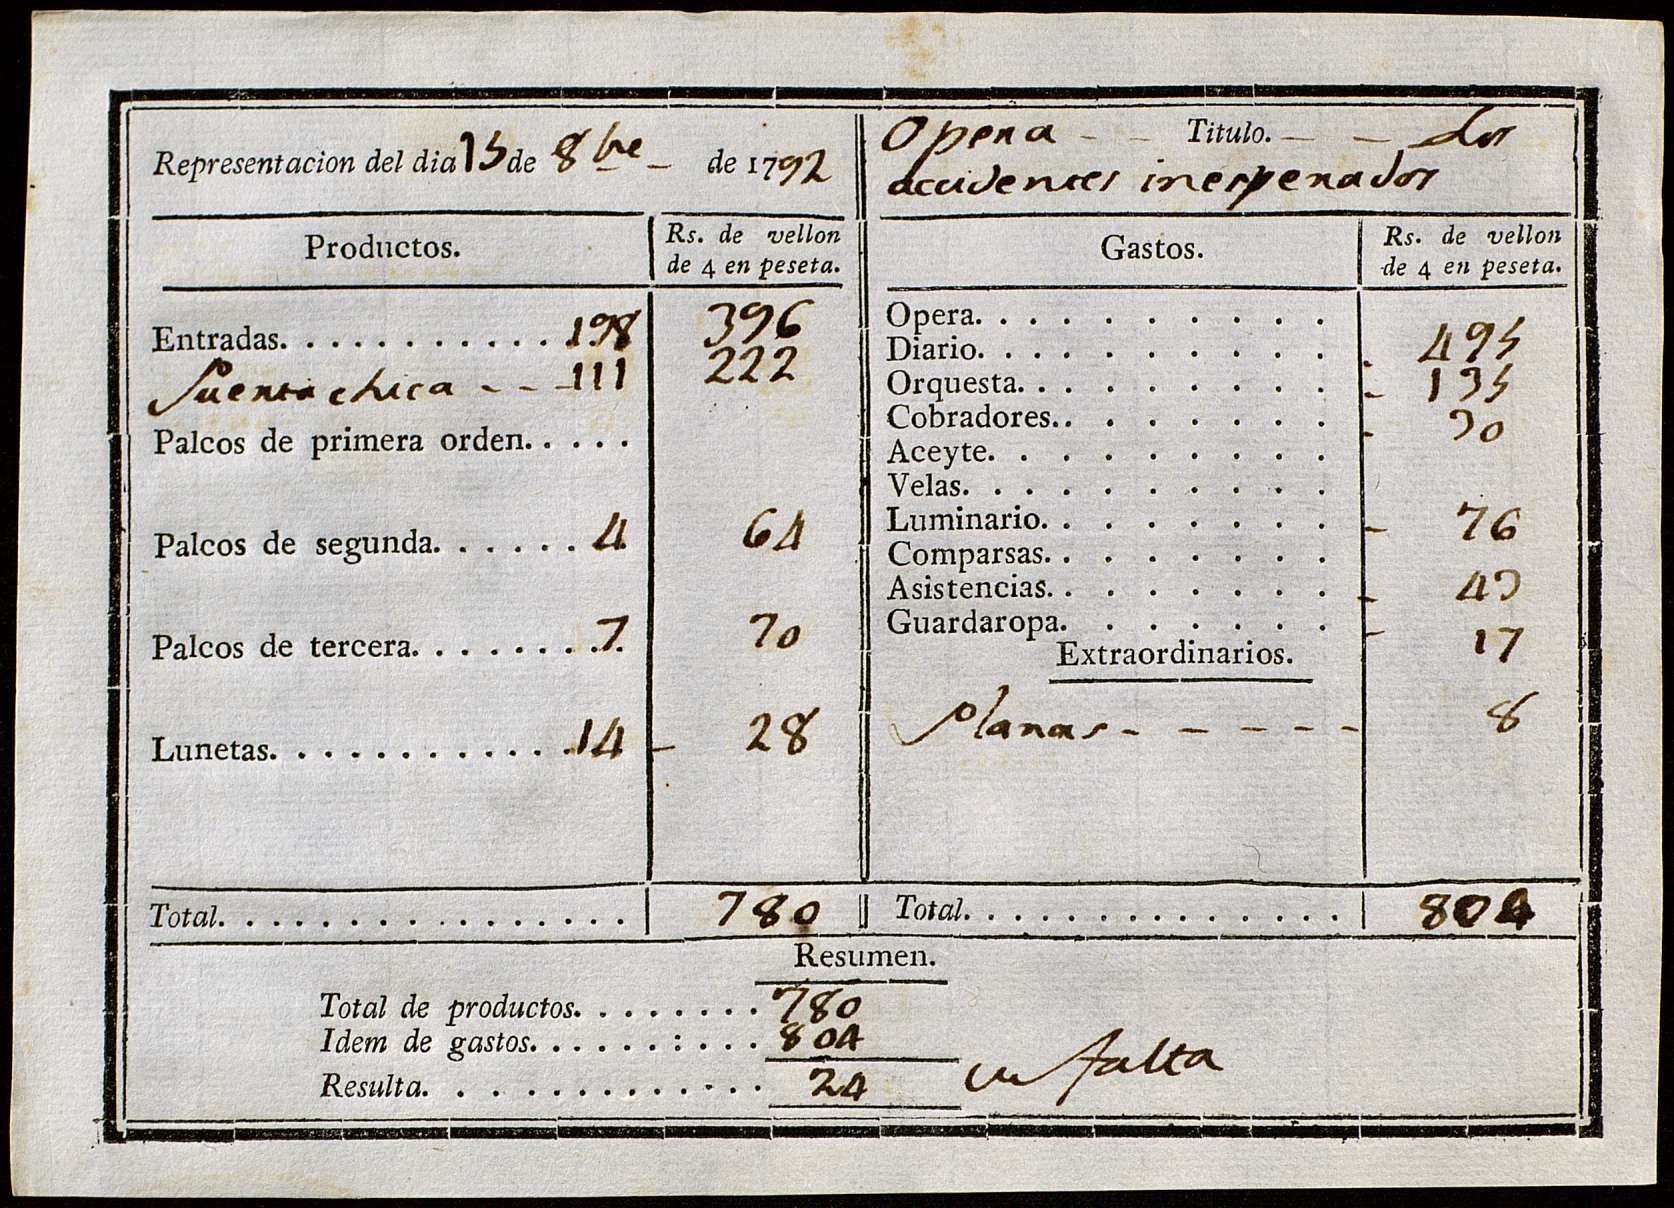 Representacion del dia 15 de 8bre - de 1792
Opera - - Titulo. - - Los
accidentes inesperados
Productos.
Rs. de vellon
de 4 en peseta.
Entradas. . . . . . . . . . . . 198 396
Puerta chica - - - 111 222
Palcos de primera orden. . . . .
Palcos de segunda. . . . . . 4 64
Palcos de tercera. . . . . . . . 7 70
Lunetas. . . . . . . . . . . . 14 - 28
Total. . . . . . . . . . . . . . . . 780
Gastos.
Rs. de vellon
de 4 en peseta.
Opera. . . . . . . . . . .
Diario. . . . . . . . . . . 495
Orquesta. . . . . . . . . . - 135
Cobradores. . . . . . . . - 30
Aceyte. . . . . . . . . .
Velas. . . . . . . . . . .
Luminario. . . . . . . . - 76
Comparsas. . . . . . . .
Asistencias. . . . . . . . - 43
Guardaropa. . . . . . . - 17
Extraordinarios.
Planas - - - - - 8
Total. . . . . . . . . . . . . . . 804
Resumen.
Total de productos. . . . . . . . 780
Idem de gastos. . . . . . : . . . 804
Resulta. . . . . . . . . . . . . 24 falta